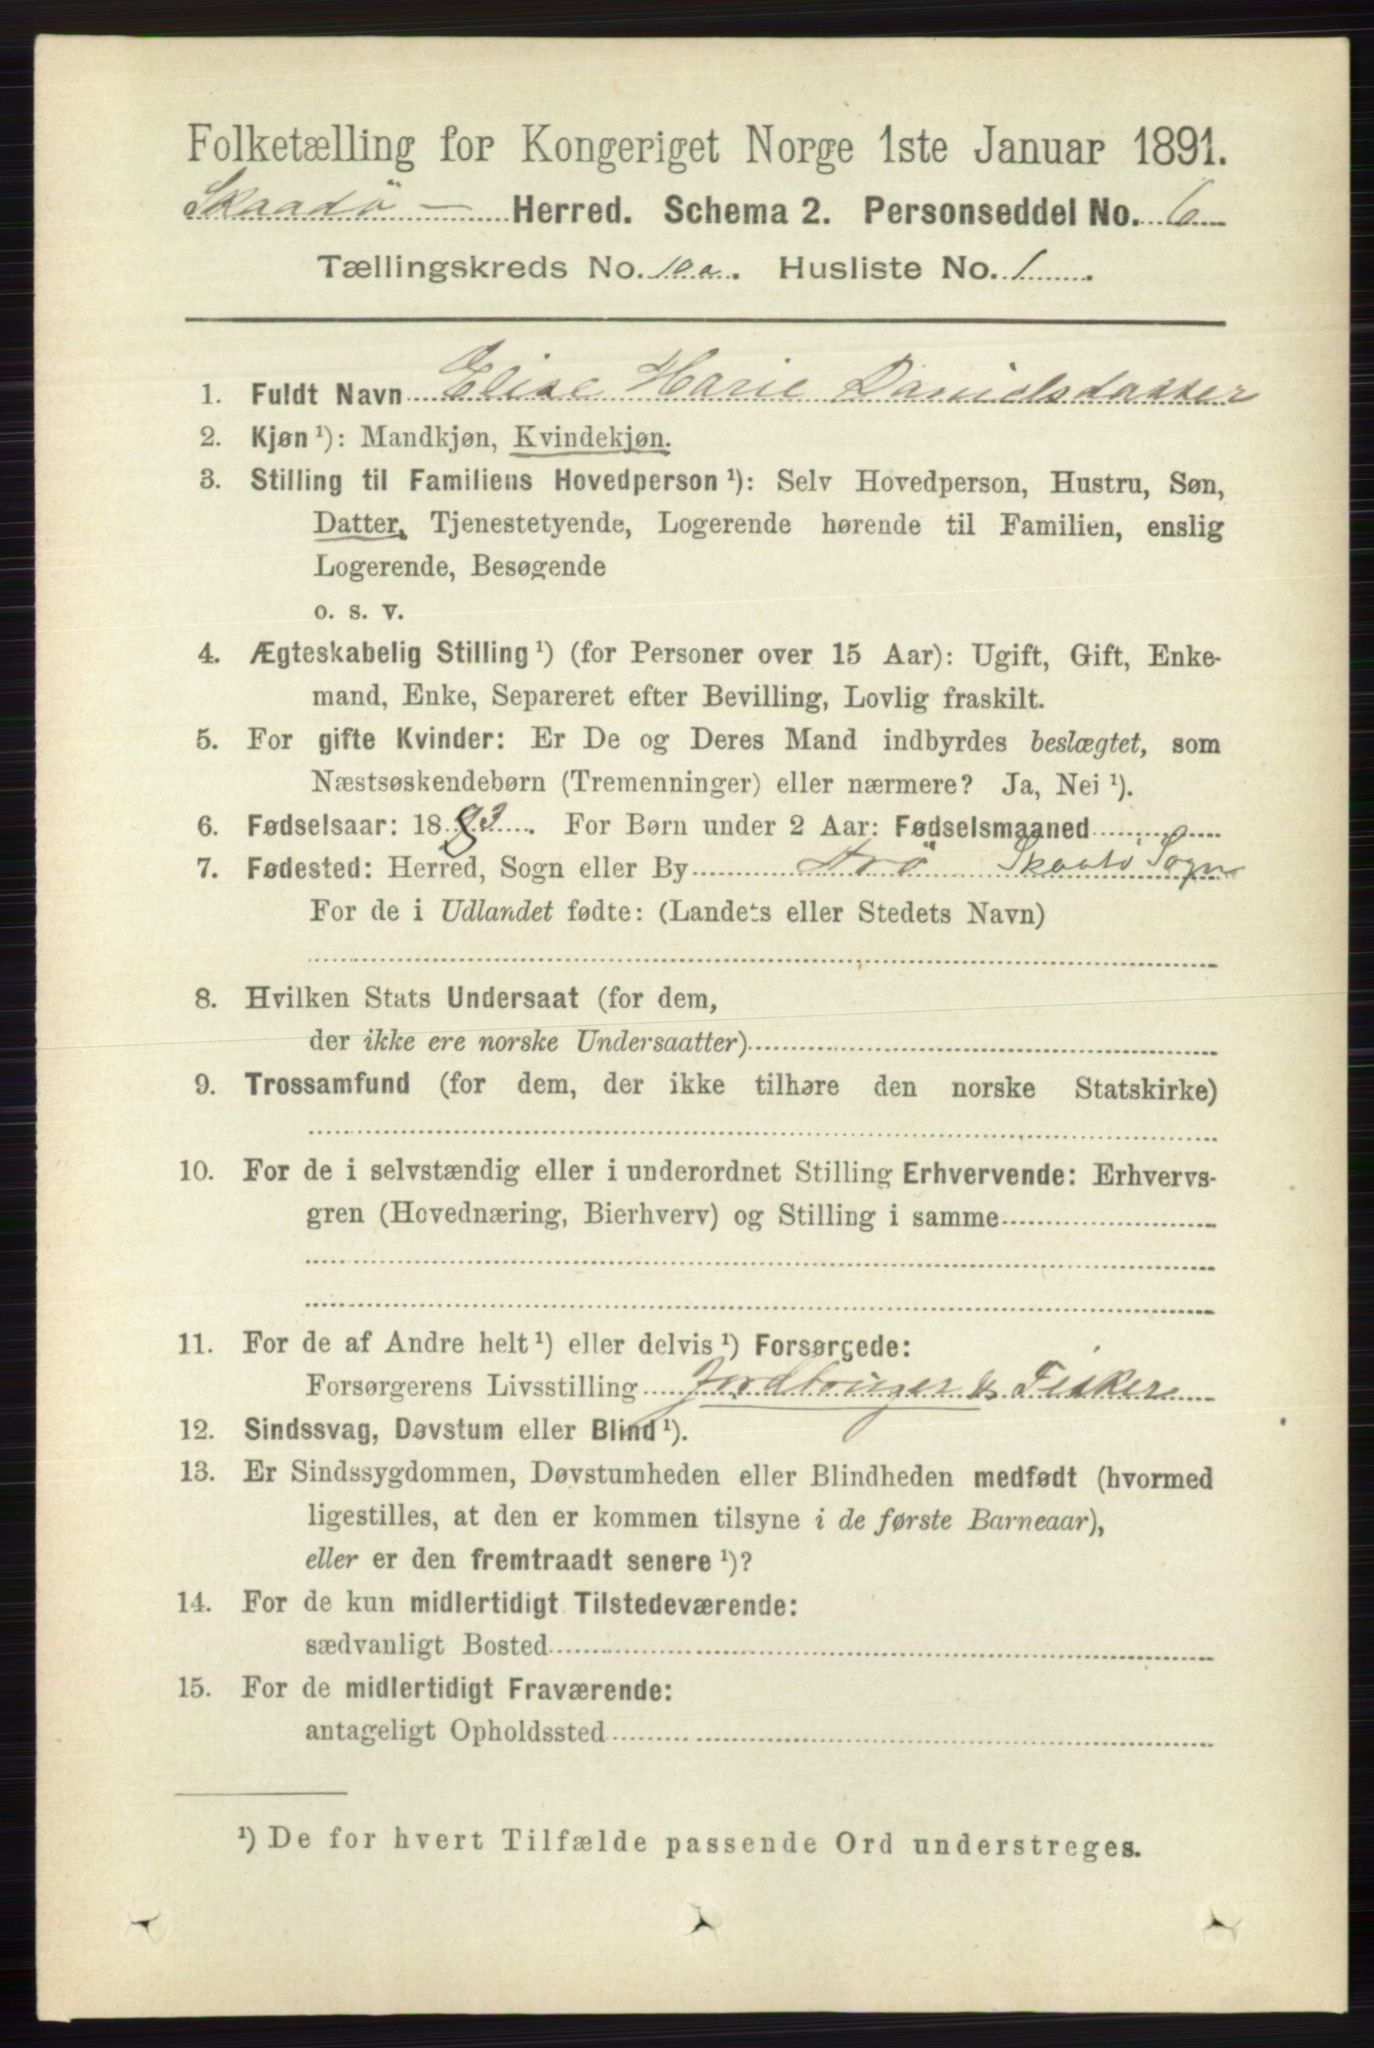 Folketælling for Kongeriget Norge 1ste Januar 1891.
Skaadö — Herred. Schema 2. Personseddel No. 6
Tællingskreds No. 10 a. Husliste No. 1
1. Fuldt Navn Elise Marie Danielsdatter
2. Kjøn ¹): Mandkjøn, Kvindekjøn.
3. Stilling til Familiens Hovedperson ¹): Selv Hovedperson, Hustru, Søn,
Datter, Tjenestetyende, Logerende hørende til Familien, enslig
Logerende, Besøgende
o. s. v.
4. Ægteskabelig Stilling ¹) (for Personer over 15 Aar): Ugift, Gift, Enke-
mand, Enke, Separeret efter Bevilling, Lovlig fraskilt.
5. For gifte Kvinder: Er De og Deres Mand indbyrdes beslægtet, som
Næstsøskendebørn (Tremenninger) eller nærmere? Ja, Nei ¹).
6. Fødselsaar: 1883. For Børn under 2 Aar: Fødselsmaaned
7. Fødested: Herred, Sogn eller By Arö Skaatö Sogn
For de i Udlandet fødte: (Landets eller Stedets Navn)
8. Hvilken Stats Undersaat (for dem,
der ikke ere norske Undersaatter)
9. Trossamfund (for dem, der ikke tilhøre den norske Statskirke)
10. For de i selvstændig eller i underordnet Stilling Erhvervende: Erhvervs-
gren (Hovednæring, Bierhverv) og Stilling i samme
11. For de af Andre helt ¹) eller delvis ¹) Forsørgede:
Forsørgerens Livsstilling Jordbruger & Fisker
12. Sindssvag, Døvstum eller Blind ¹).
13. Er Sindssygdommen, Døvstumheden eller Blindheden medfødt (hvormed
ligestilles, at den er kommen tilsyne i de første Barneaar),
eller er den fremtraadt senere ¹)?
14. For de kun midlertidigt Tilstedeværende:
sædvanligt Bosted
15. For de midlertidigt Fraværende:
antageligt Opholdssted
¹) De for hvert Tilfælde passende Ord understreges.